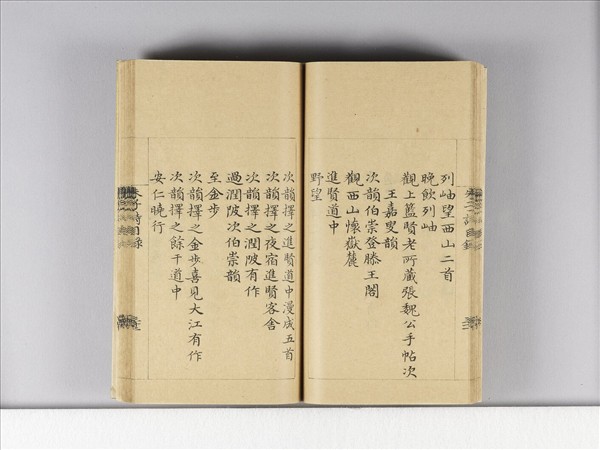 列岫望西山二首
晚飲列岫
觀上藍賢老所藏張魏公手帖次
王嘉叟韻
次韻伯崇登滕王閣
觀西山懷嶽麓
進賢道中
野望
次韻擇之進賢道中漫成五首
次韻擇之夜宿進賢客舍
次韻擇之潤陂有作
過潤陂次伯崇韻
至金步
次韻擇之金步喜見大江有作
次韻擇之餘干道中
安仁曉行